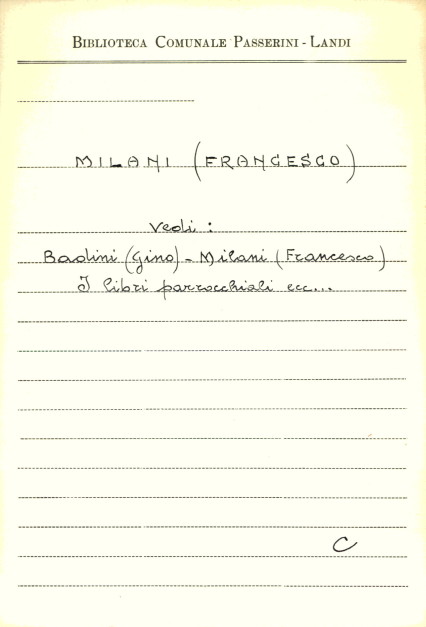 BIBLIOTECA COMUNALE PASSERINI - LANDI
MILANI (FRANCESCO)
Vedi :
Badini (Gino) - Milani (Francesco)
I libri parrocchiali ecc...
C